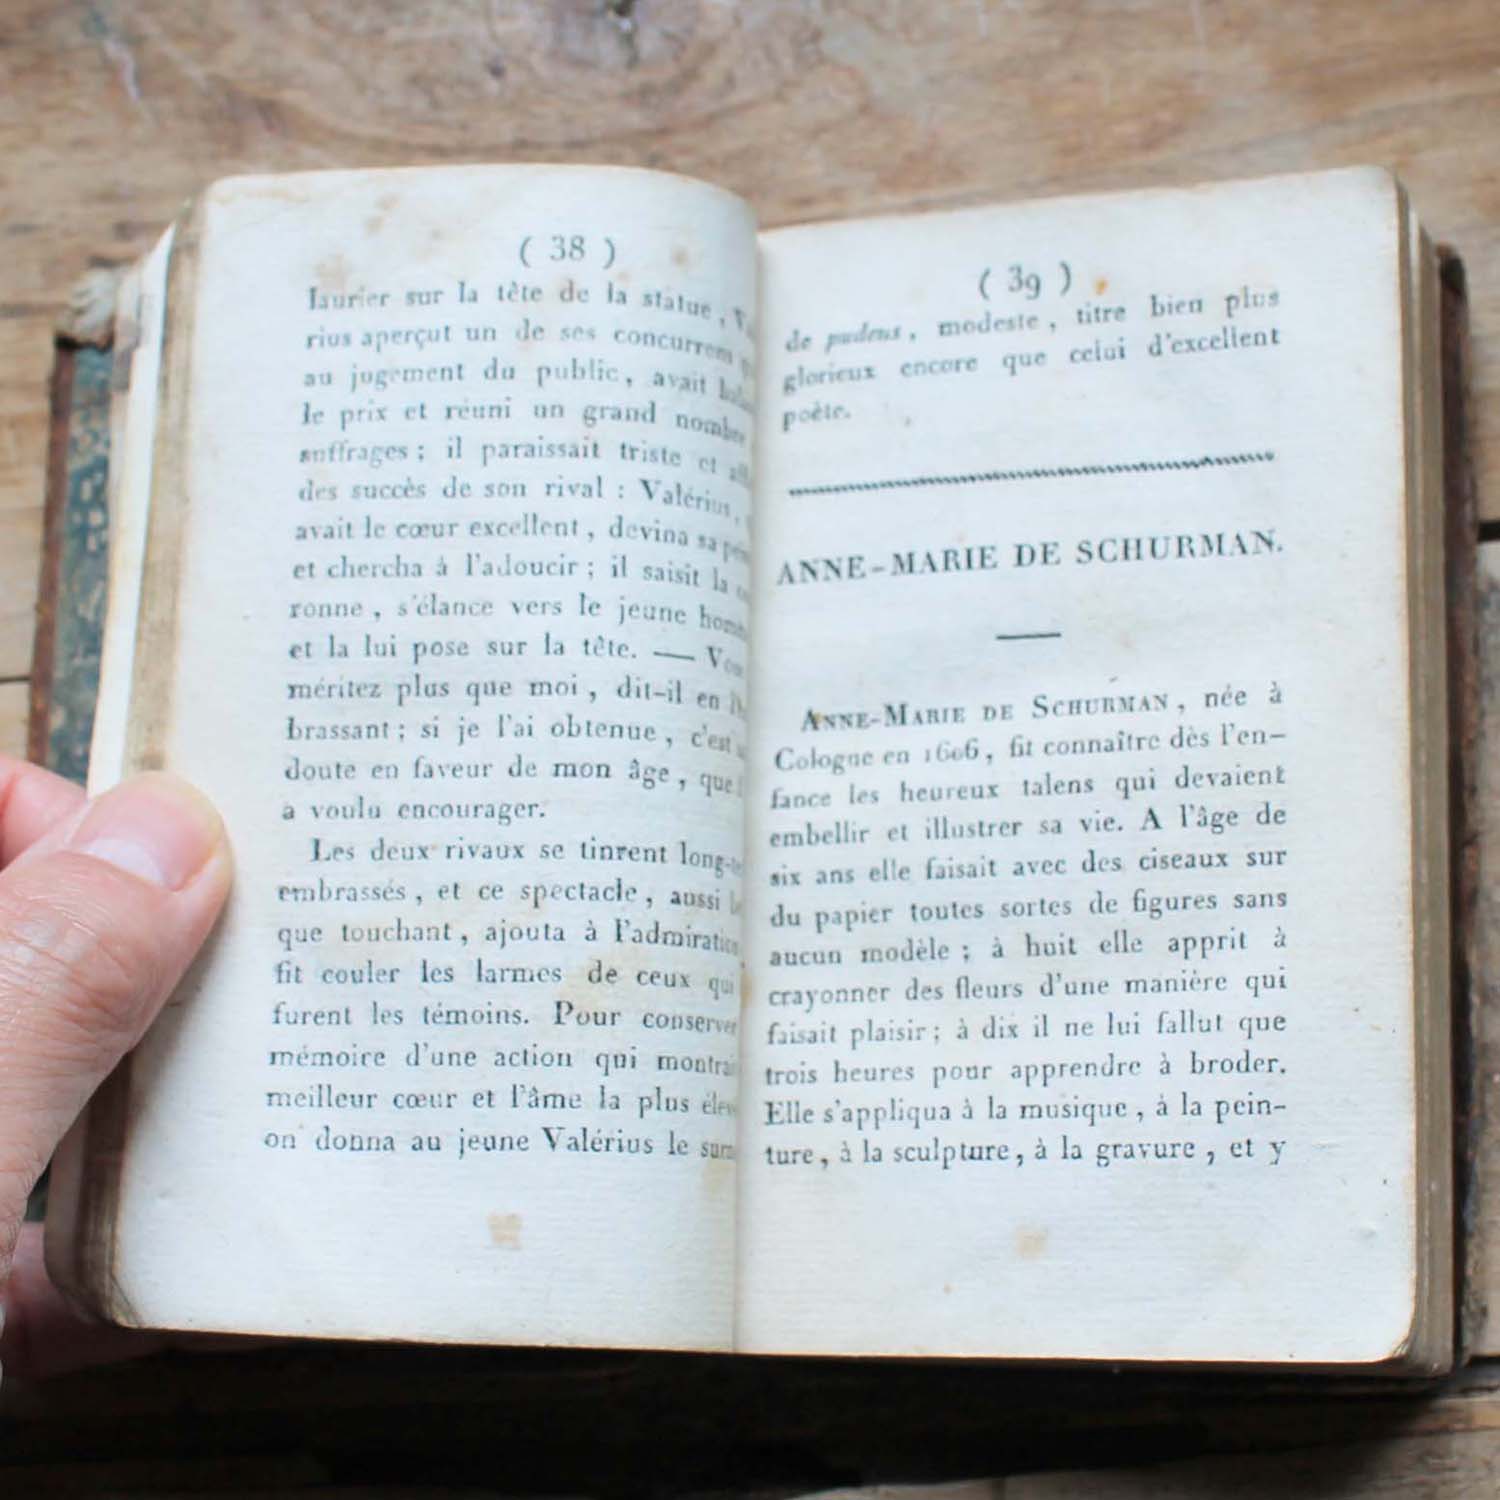 ( 38 )
laurier sur la tête de la statue,
rius aperçut un de ses concurrens
au jugement du public, avait
le prix et réuni un grand nombre
suffrages; il paraissait triste et
des succès de son rival : Valérius,
avait le cœur excellent, devina sa
et chercha à l'adoucir; il saisit la
ronne, s'élance vers le jeune
et la lui pose sur la tête. —
méritez plus que moi, dit-il en
brassant; si je l'ai obtenue, c'est
doute en faveur de mon âge, que
a voulu encourager.
Les deux rivaux se tinrent long-
embrassés, et ce spectacle, aussi
que touchant, ajouta à l'admiration,
fit couler les larmes de ceux qui
furent les témoins. Pour conserver
mémoire d'une action qui
meilleur cœur et l'âme la plus
on donna au jeune Valérius le
( 39 )
de pudens, modeste, titre bien plus
glorieux encore que celui d'excellent
poète.
ANNE-MARIE DE SCHURMAN.
ANNE-MARIE DE SCHURMAN, née à
Cologne en 1606, fit connaître dès l'en-
fance les heureux talens qui devaient
embellir et illustrer sa vie. A l'âge de
six ans elle faisait avec des ciseaux sur
du papier toutes sortes de figures sans
aucun modèle; à huit elle apprit à
crayonner des fleurs d'une manière qui
faisait plaisir; à dix il ne lui fallut que
trois heures pour apprendre à broder.
Elle s'appliqua à la musique, à la pein-
ture, à la sculpture, à la gravure, et y